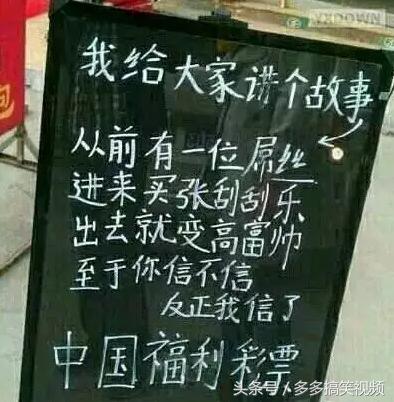 YXDOWN
我给大家讲个故事
从前有一位屌丝
进来买张刮刮乐
出去就变高富帅
至于你信不信
反正我信了
中国福利彩票
头条号/多多搞笑视频